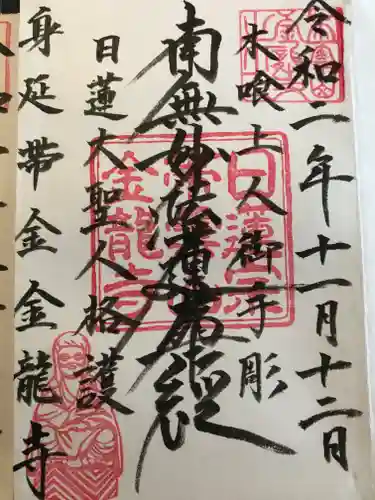 令和二年十一月十二日
木喰上人御手彫
南無妙法蓮華経
日蓮大聖人格護
身延帯金金龍寺
日蓮宗
金龍寺